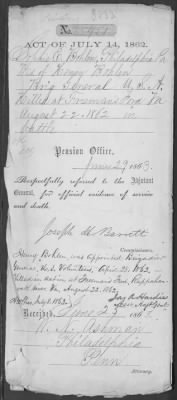 ACT OF JULY 14, 1862.
Sophie C Bohlen, Philadelphia Pa
Wid of Henry Bohlen
Brig General U.S.A.
Killed at Freemans Ford Va
August 22 1862 in
battle
Pension Office,
June 29, 1863.
Respectfully referred to the Adjutant
General, for official evidence of service
and death.
Joseph H Barrett
Commissioner.
Henry Bohlen was appointed Brigadier
General, U.S. Volunteers, April 28, 1862,
Killed in action at Freeman's Ford, Rappahan-
nock River Va, August 22, 1862.
Jas A Hardie
Received, June 23, 1863
W. N. Ashman
Philadelphia
Penn
Attorney.